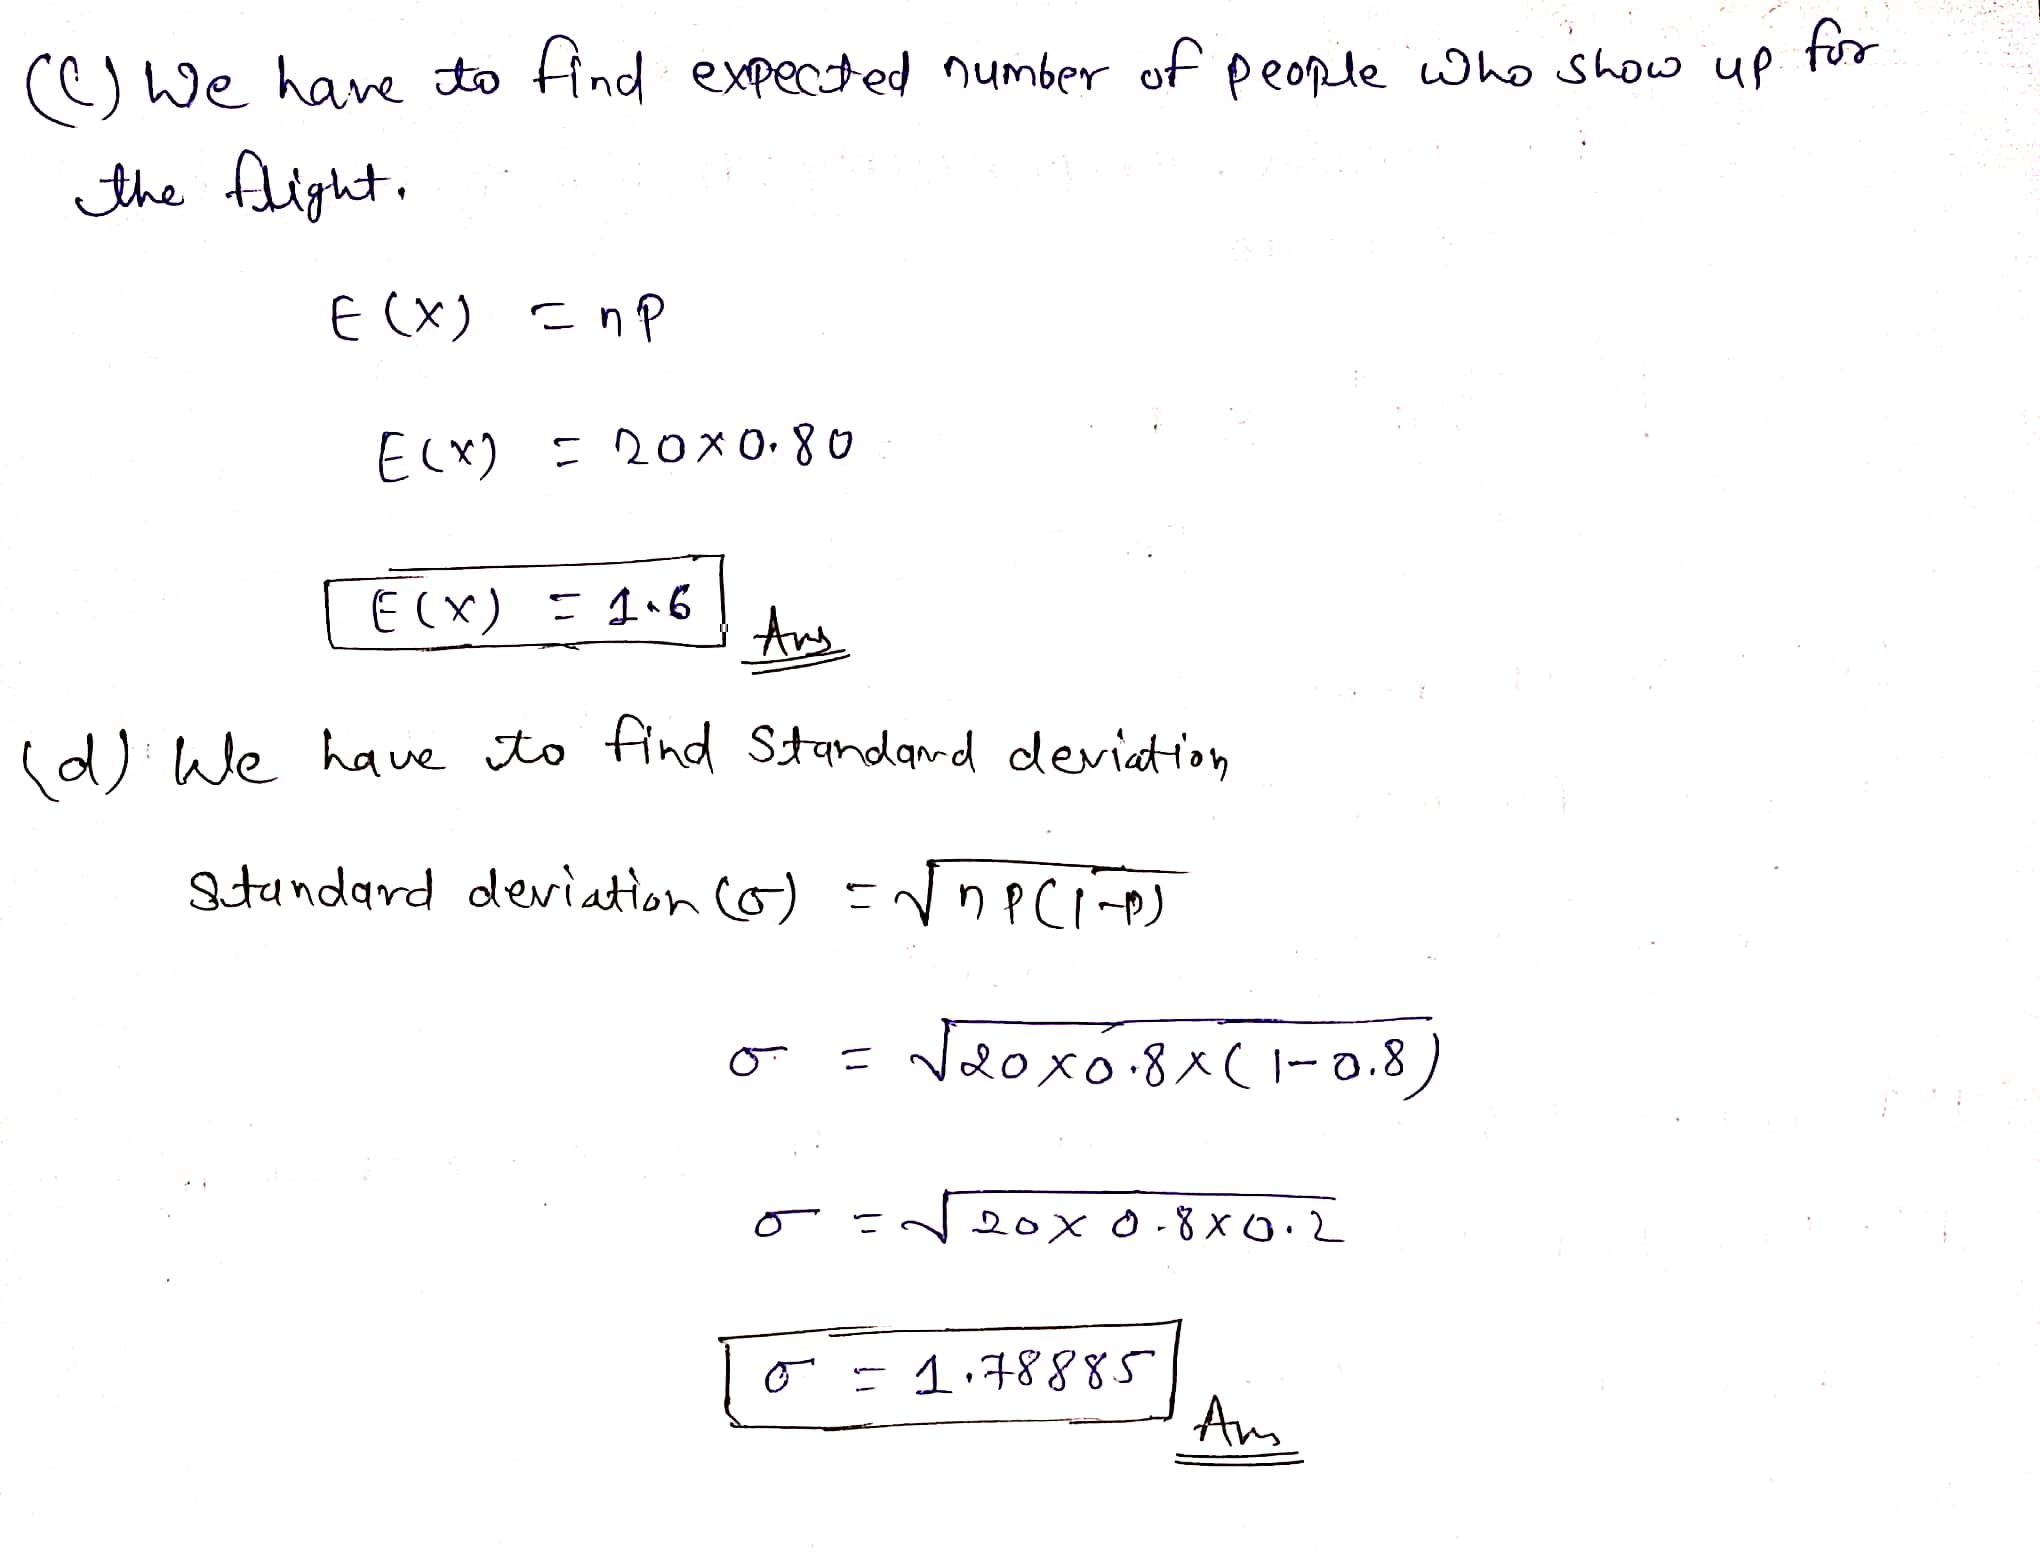 (C) We have to find expected number of people who show up for
the flight.
E(X) = nP
E(X) = 20×0.80
E(X) = 1.6
Ans
(d) We have to find Standard deviation
Standard deviation (σ) = √nP(1-p)
σ = √20×0.8×(1-0.8)
σ = √20×0.8×0.2
σ = 1.78885
Ans